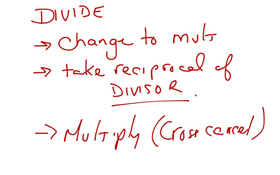 DIVIDE
→ Change to mult
→ take reciprocal of
DIVISOR.
→ Multiply (Cross cancel)